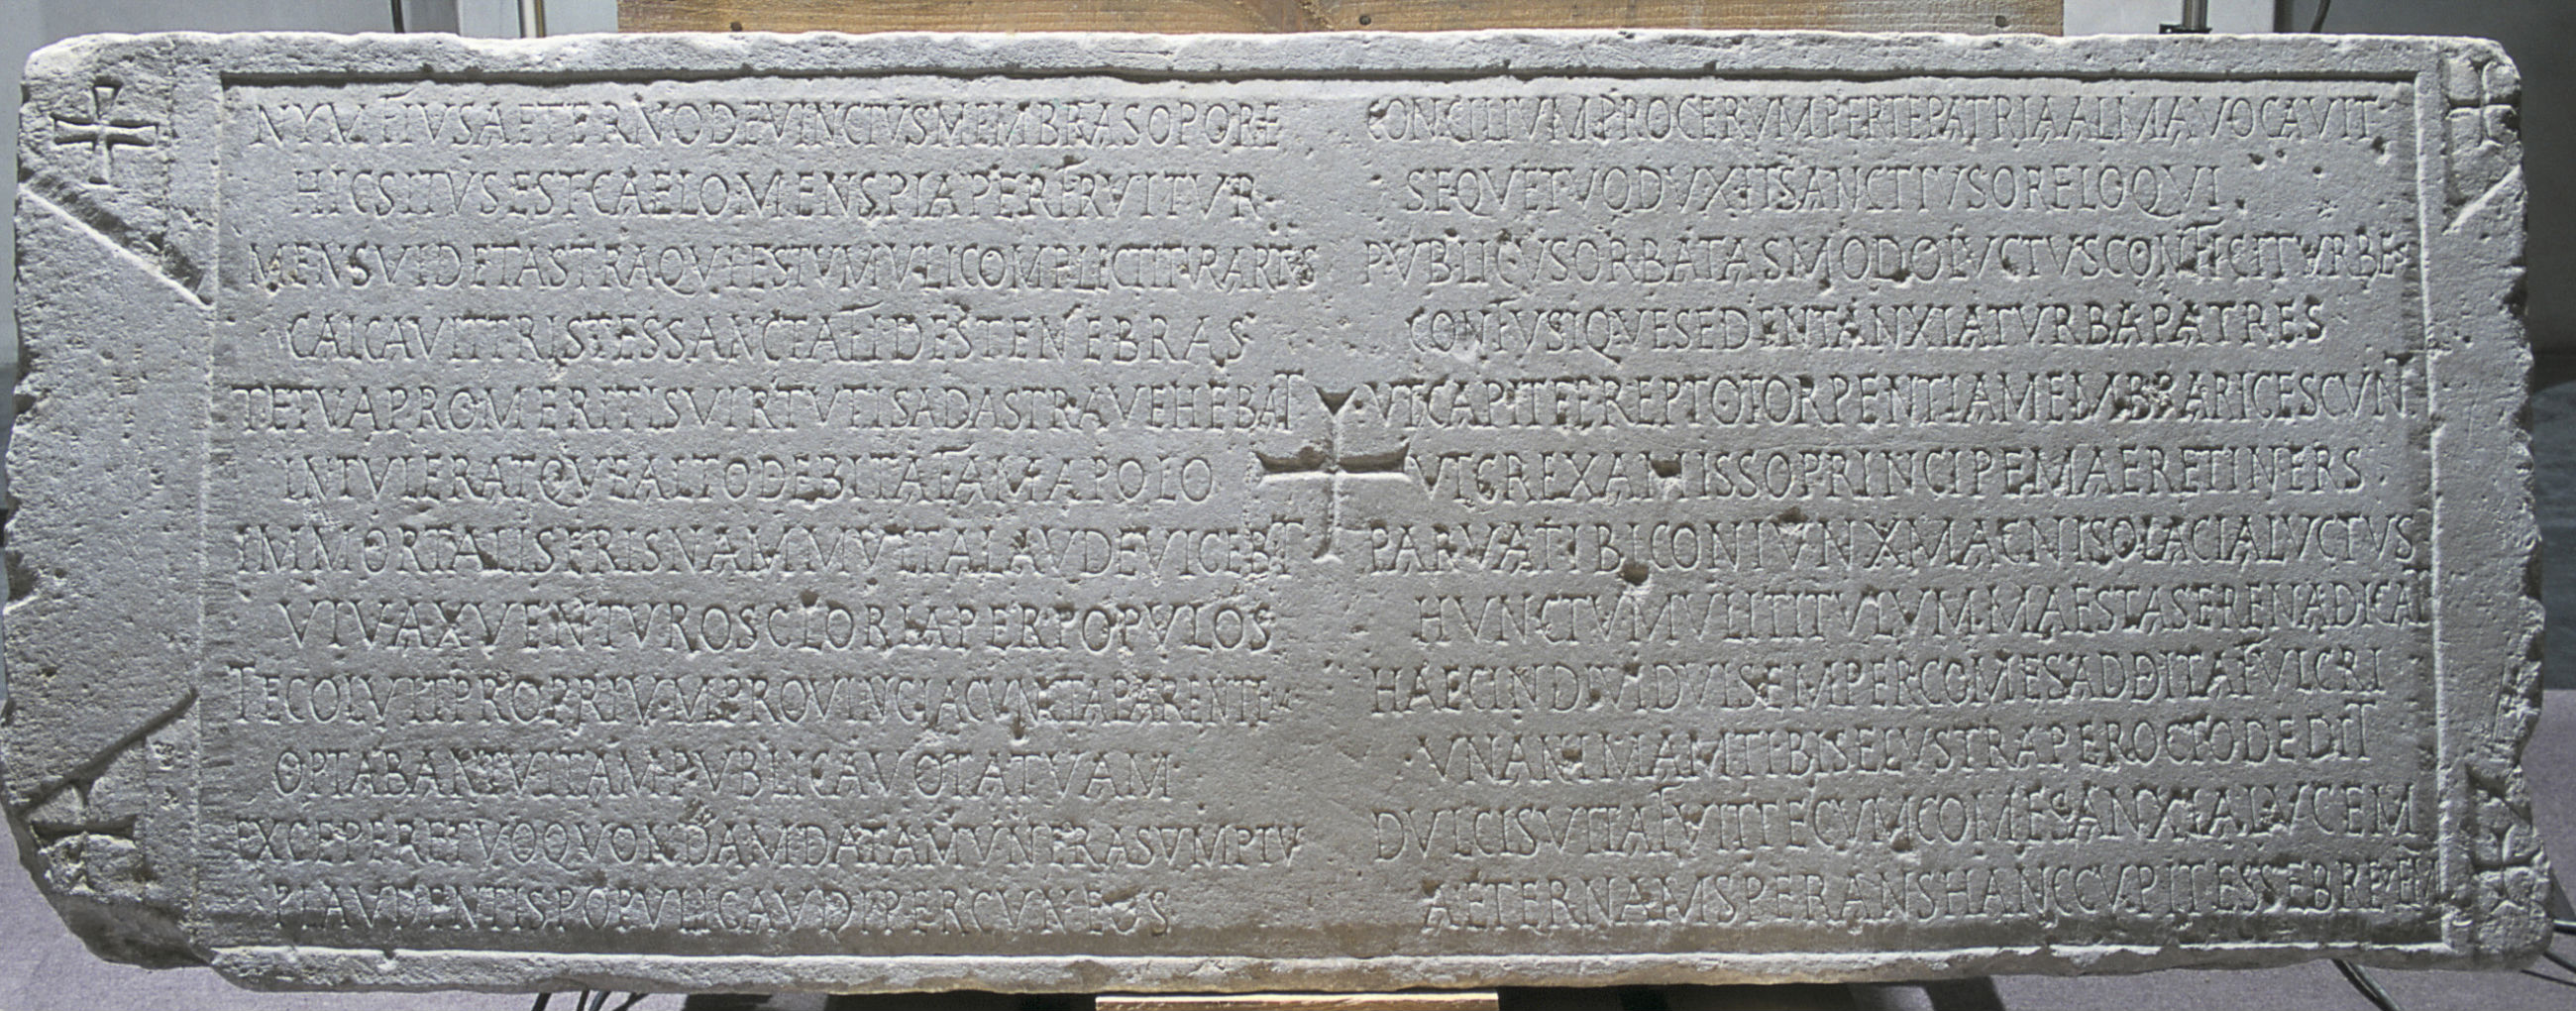 NYMFIVS AETERNO DEVINCTVS MEMBRA SOPORE
HIC SITVS EST CAELO MENS PIA PERFRVITVR
MENS VIDET ASTRA QVIES TVMVLI COMPLECTITVR ARTVS
CALCAVIT TRISTES SANCTA FIDES TENEBRAS
TE TVA PRO MERITIS VIRTVTIS AD ASTRA VEHEBAT
INTVLERATQVE ALTO DEBITA FAMA POLO
IMMORTALIS ERIS NAM MVLTA LAVDE VIGEBIT
VIVAX VENTVROS GLORIA PER POPVLOS
TE COLVIT PROPRIVM PROVINCIA CVNCTA PARENTEM
OPTABANT VITAM PVBLICA VOTA TVAM
EXCEPERE TVO QVONDAM DATA MVNERA SVMPTV
PLAVDENTIS POPVLI GAVDIA PER CVNEOS
CONCILIVM PROCERVM PER TE PATRIA ALMA VOCAVIT
SEQVE TVO DVXIT SANCTIVS ORE LOQVI
PVBLICVS ORBATAS MODO LVCTVS CONFICIT VRBES
CONFVSIQVE SEDENT ANXIA TVRBA PATRES
VT CAPITE EREPTO TORPENTIA MEMBRA RIGESCVNT
VT GREX AMISSO PRINCIPE MAERET INERS
PARVA TIBI CONIVNX MAGNI SOLACIA LVCTVS
HVNC TVMVLI TITVLVM MAESTA SERENA DICAT
HAEC INDIVIDVI SEMPER COMES ADDITA FVLCRI
VNANIMAM TIBI SE LVSTRA PER OCTO DEDIT
DVLCIS VITA FVIT TECVM COMES ANXIA LVCEM
AETERNAM SPERANS HANC CVPIT ESSE BREVEM